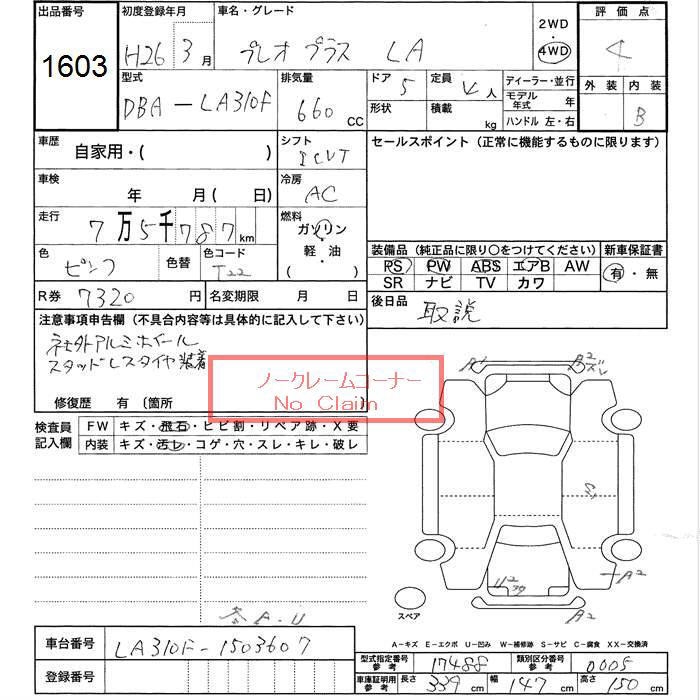 出品番号 初度登録年月 車名・グレード 2WD・4WD 評価点
1603 H26 3月 プレオ プラス LA 4
型式 排気量 ドア 5 定員 4人 ディーラー・並行 外装 内装
DBA-LA310F 660CC 形状 積載 kg モデル年式 年 B
ハンドル 左・右
車歴 自家用・( ) シフト ICVT セールスポイント(正常に機能するものに限ります)
車検 年 月(日) 冷房 AC
走行 7万5千787km 燃料 ガソリン
軽・油
( )
色 ピンク 色替 色コード T22
装備品(純正品に限り○をつけてください) 新車保証書
PS PW ABS エアB AW 有・無
SR ナビ TV カワ
R券 7320円 名変期限 月 日 後日品 取説
注意事項申告欄(不具合内容等は具体的に記入して下さい)
社外アルミホイール
スタッドレスタイヤ装着
ノークレームコーナー
No Claim
修復歴 有(箇所 )
検査員記入欄 FW キズ・飛石・ヒビ割・リペア跡・X要
内装 キズ・汚レ・コゲ・穴・スレ・キレ・破レ
A1 A2 ズレ
S1
U2
A2
A2
スペア
A-キズ E-エクボ U-凹み W-補修跡 S-サビ C-腐食 XX-交換済
車台番号 LA310F-1503607
登録番号
型式指定番号参考 17488 類別区分番号参考 0005
車庫証明用参考 長さ 339cm 幅 147cm 高さ 150cm